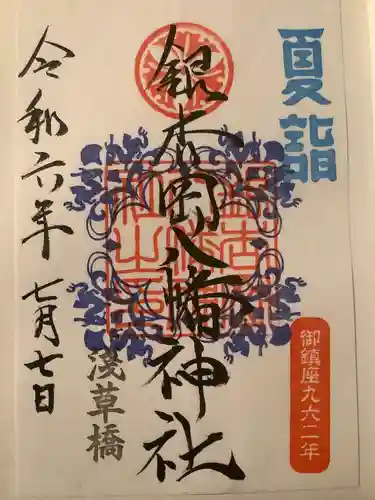 夏詣
御鎮座九六二年
銀杏岡八幡神社
浅草橋
令和六年 七月七日